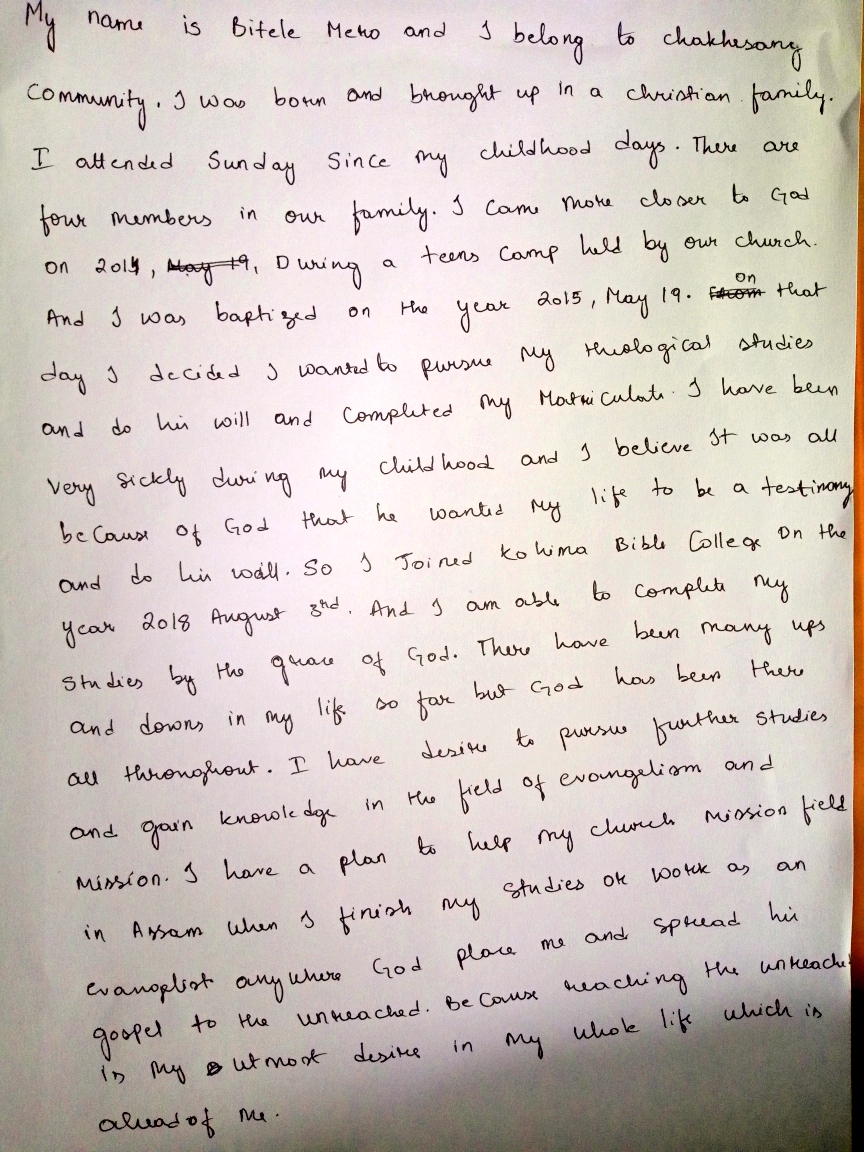 My name is Bitele Mero and I belong to chakhesang
community. I was born and brought up in a christian family.
I attended Sunday Since my childhood days. There are
four members in our family. I came more closer to God
on 2014, May 19, During a teens camp held by our church.
And I was baptized on the year 2015, May 19. on that
day I decided I wanted to pursue my theological studies
and do his will and Completed my Matriculate. I have been
very sickly during my childhood and I believe It was all
because of God that he wanted my life to be a testimony
and do his will. So I Joined Kohima Bible College On the
year 2018 August 3rd. And I am able to complete my
studies by the grace of God. There have been many ups
and downs in my life so far but God has been there
all throughout. I have desire to pursue further studies
and gain knowledge in the field of evangelism and
Mission. I have a plan to help my church mission field
in Assam when I finish my studies or work as an
evangelist anywhere God place me and spread his
gospel to the unreached. Because reaching the unreache
is my utmost desire in my whole life which is
ahead of me.